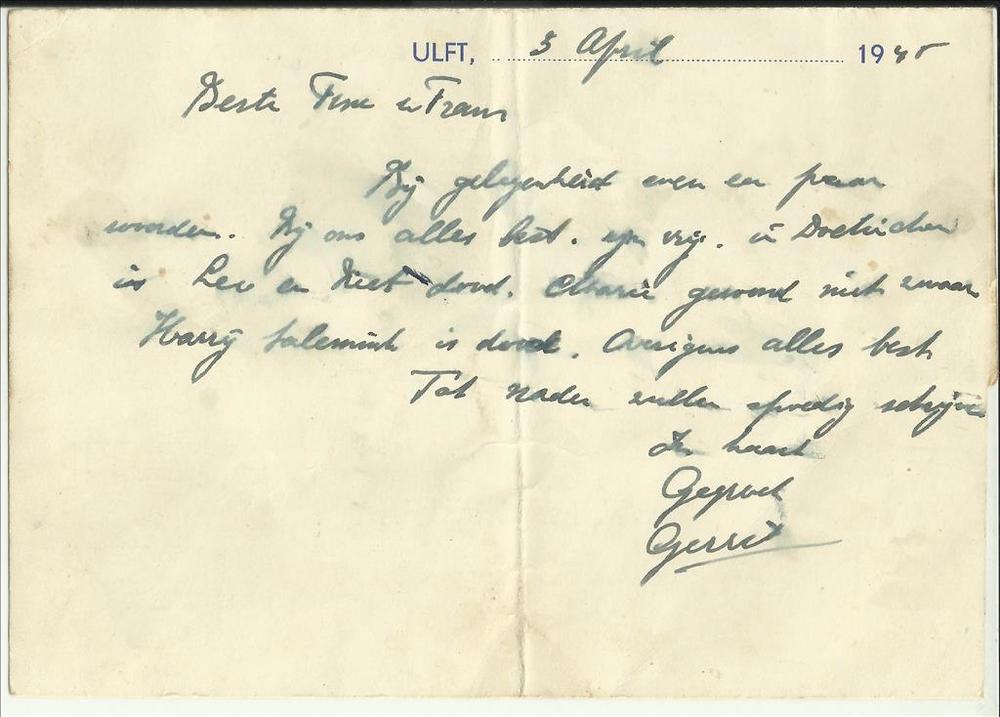 ULFT, 3 April 1945
Beste Fine en Frans
Bij gelegenheid even een paar
woorden. Bij ons alles best. zijn vrij. in Doetinchem
is Leo en Riet dood. Marie gewond niet zwaar
Harry Salemink is dood. Overigens alles best
Tot nader zullen spoedig schrijven
In haast
Gegroet
Gerrit